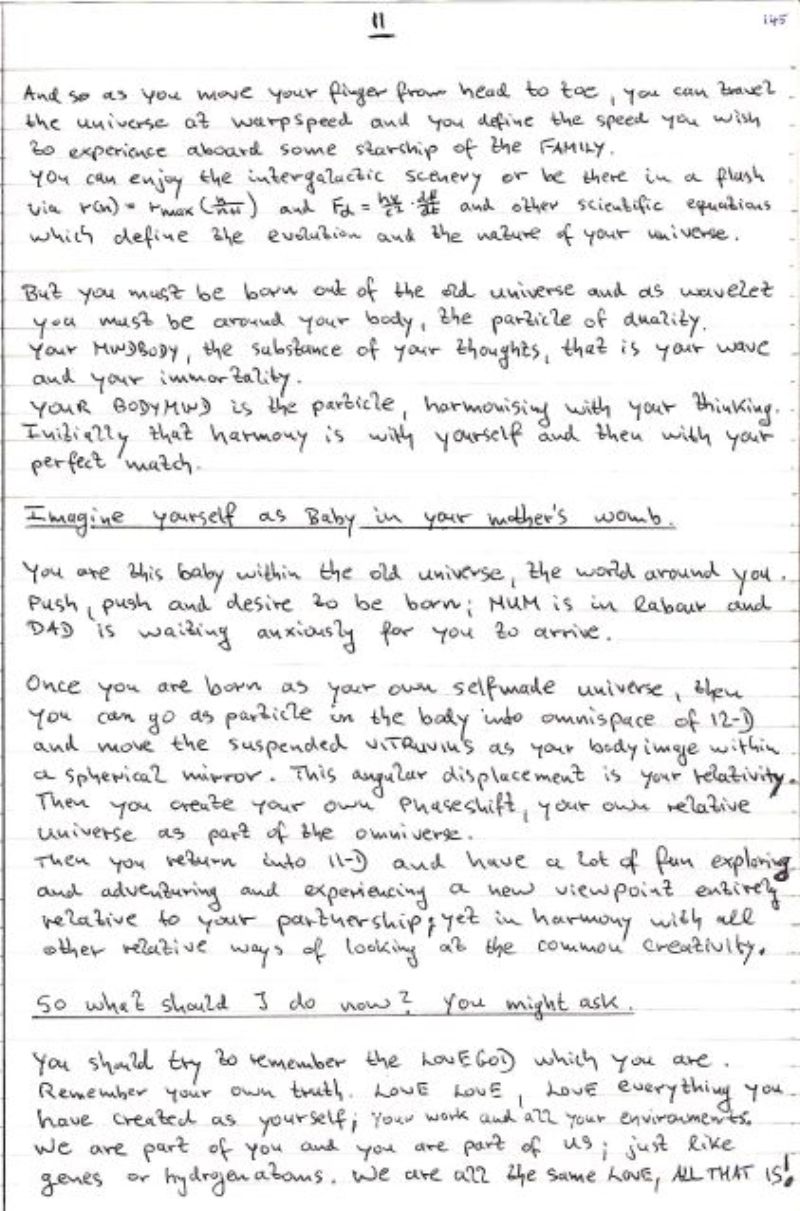 11
145
And so as you move your finger from head to toe, you can travel
the universe at warpspeed and you define the speed you wish
to experience aboard some starship of the FAMILY.
You can enjoy the intergalactic scenery or be there in a flash
via r(n) = rmax (n/n+1) and and other scientific equations
which define the evolution and the nature of your universe.
But you must be born out of the old universe and as wavelet
you must be around your body, the particle of duality.
Your MINDBODY, the substance of your thoughts, that is your wave
and your immortality.
YOUR BODYMIND is the particle, harmonising with your thinking.
Initially that harmony is with yourself and then with your
perfect match.
Imagine yourself as Baby in your mother's womb.
You are this baby within the old universe, the world around you.
Push, push and desire to be born; MUM is in labour and
DAD is waiting anxiously for you to arrive.
Once you are born as your own selfmade universe, then
you can go as particle in the body into omnispace of 12-D
and move the suspended VITRUVIUS as your bodyimage within
a spherical mirror. This angular displacement is your relativity.
Then you create your own Phaseshift, your own relative
universe as part of the omniverse.
Then you return into 11-D and have a lot of fun exploring
and adventuring and experiencing a new viewpoint entirely
relative to your partnership; yet in harmony with all
other relative ways of looking at the common creativity.
So what should I do now? You might ask.
You should try to remember the LOVE(GOD) which you are.
Remember your own truth. LOVE LOVE, LOVE everything you
have created as yourself; your work and all your environments.
We are part of you and you are part of us; just like
genes or hydrogenatoms. We are all the same LOVE, ALL THAT IS!